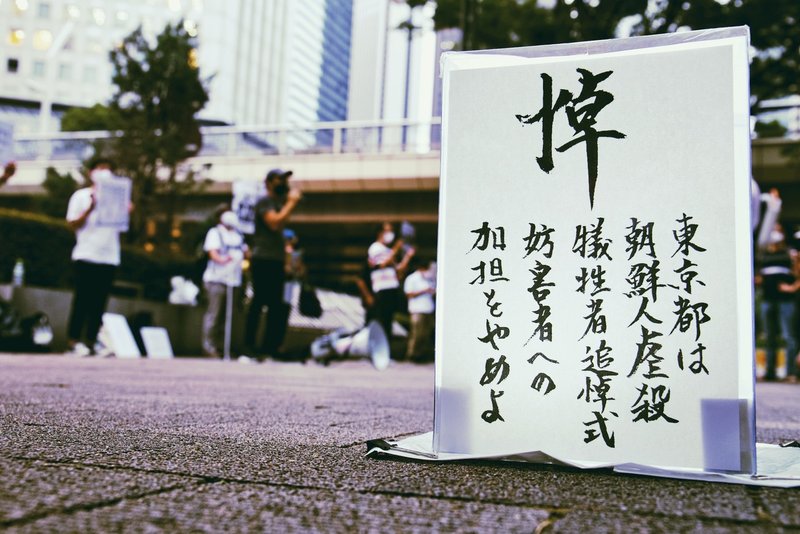 悼
東京都は
朝鮮人虐殺
犠牲者追悼式
妨害者への
加担をやめよ